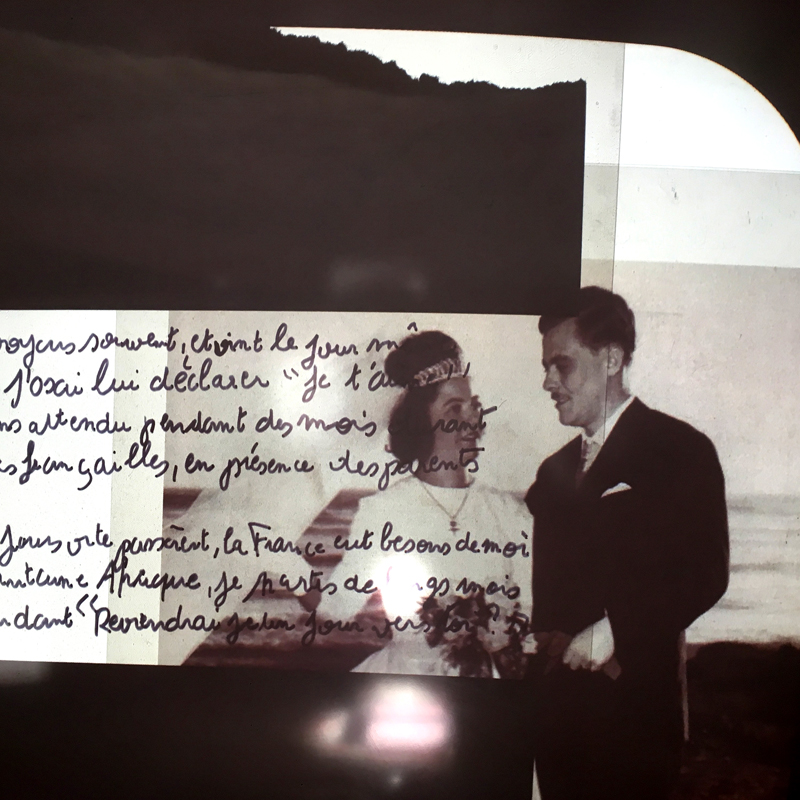 royons souvent, et vint le jour où
j'osai lui déclarer "Je t'ai
ns attendu pendant des mois durant
s fiançailles, en présence des parents
jours vite passèrent, la France eut besoins de moi
lointaine Afrique, je partis de longs mois
ndant "Reviendrai je un jour vers toi?"